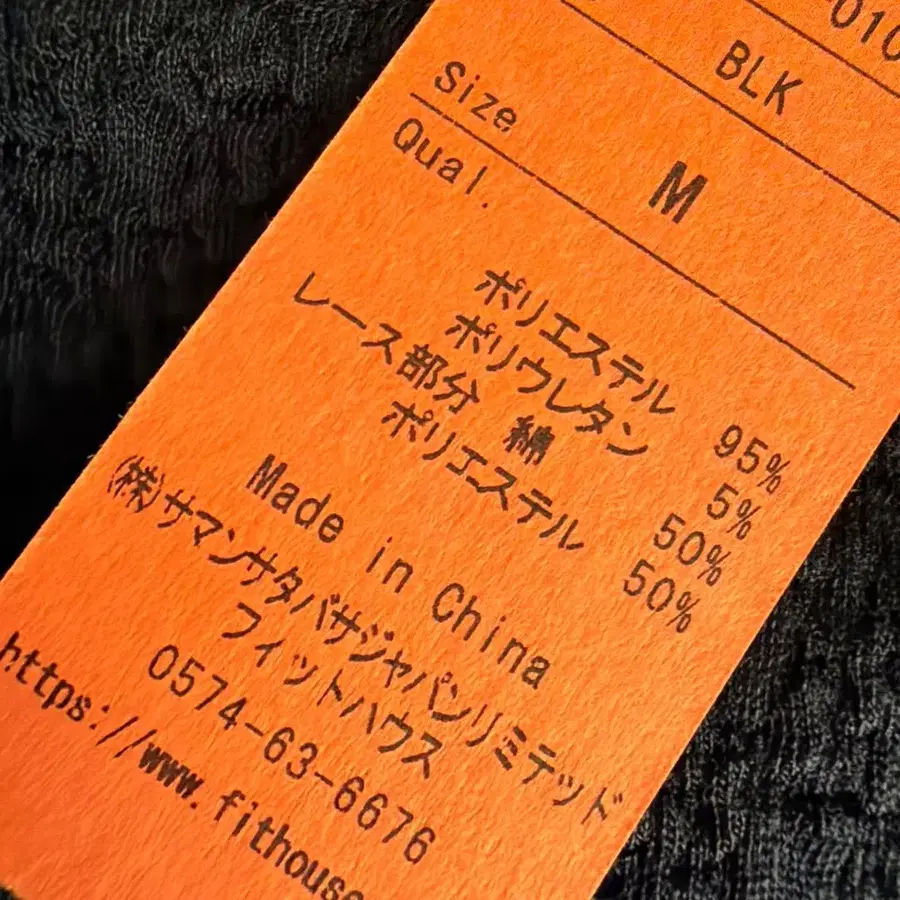 010
BLK
Size M
Qual.
ポリエステル 95%
ポリウレタン 5%
レース部分 綿 50%
ポリエステル 50%
Made in China
(株)サマンサタバサジャパンリミテッド
フィットハウス
0574-63-6676
https://www.fithouse